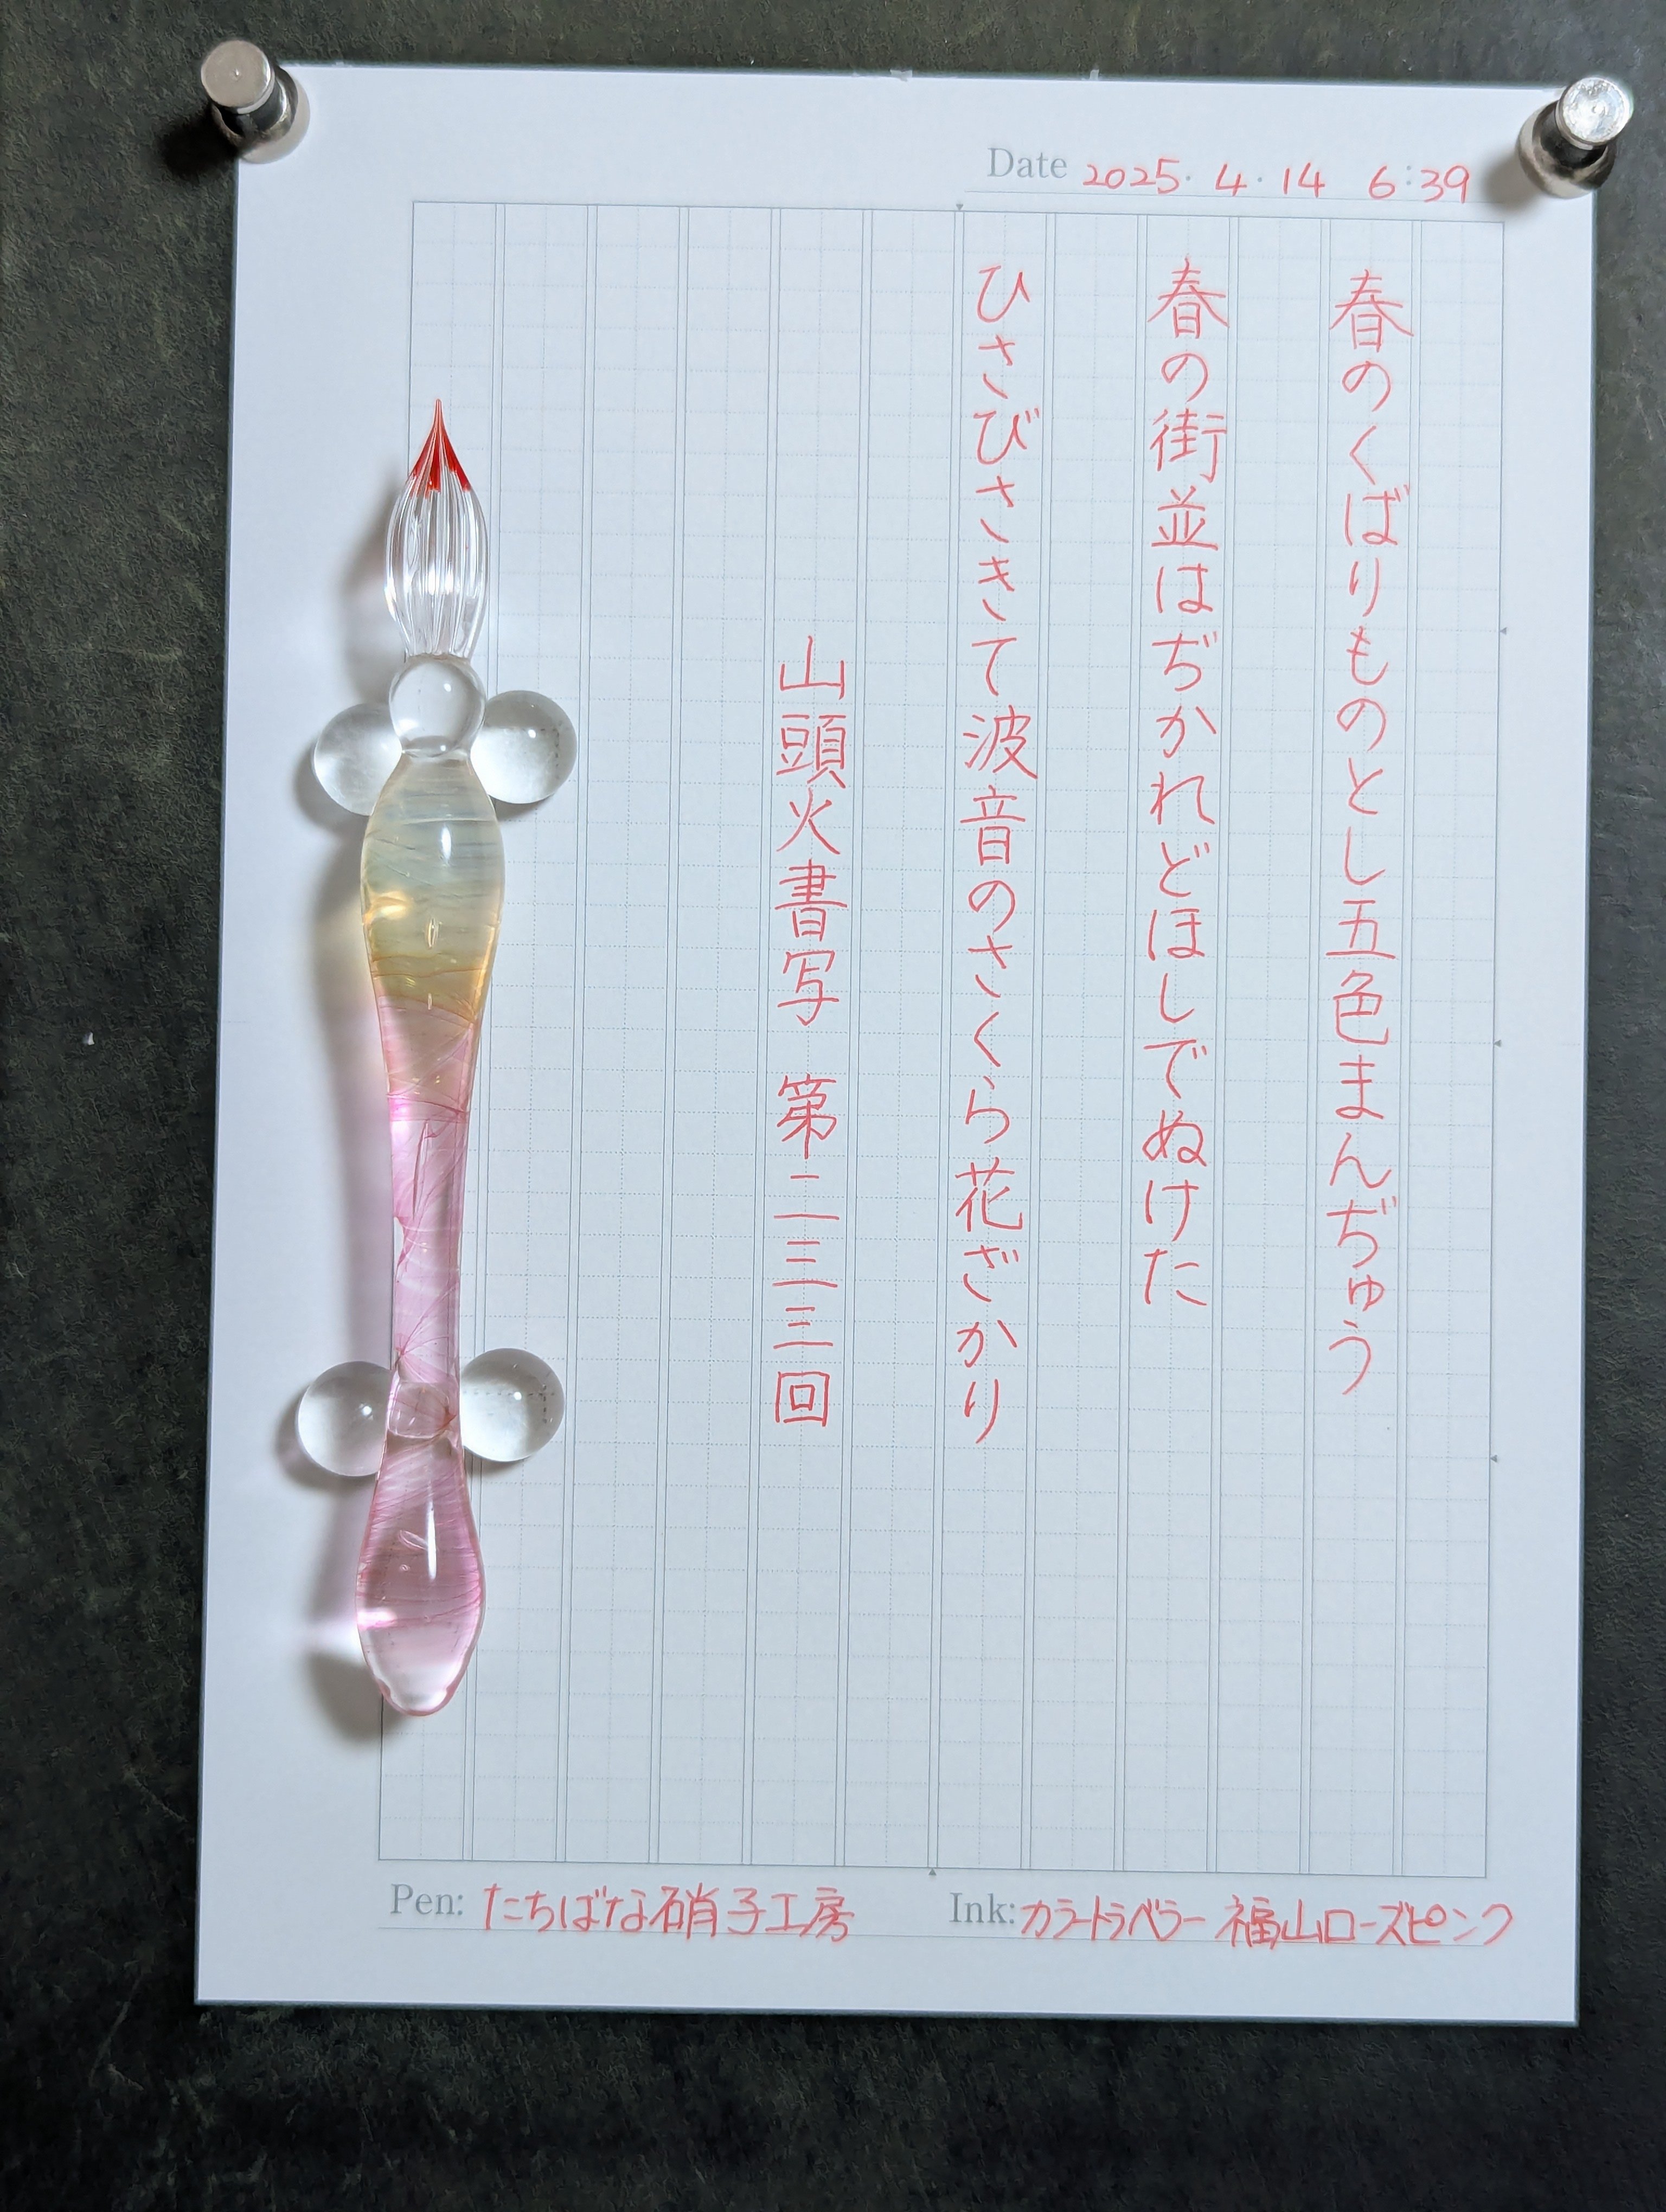 Date 2025・4・14 6:39
春のくばりものとし五色まんぢゅう
春の街並はぢかれどほしでぬけた
ひさびさきて波音のさくら花ざかり
山頭火書写 第二三三回
Pen: たちばな硝子工房
Ink: カラートラベラー 福山ローズピンク